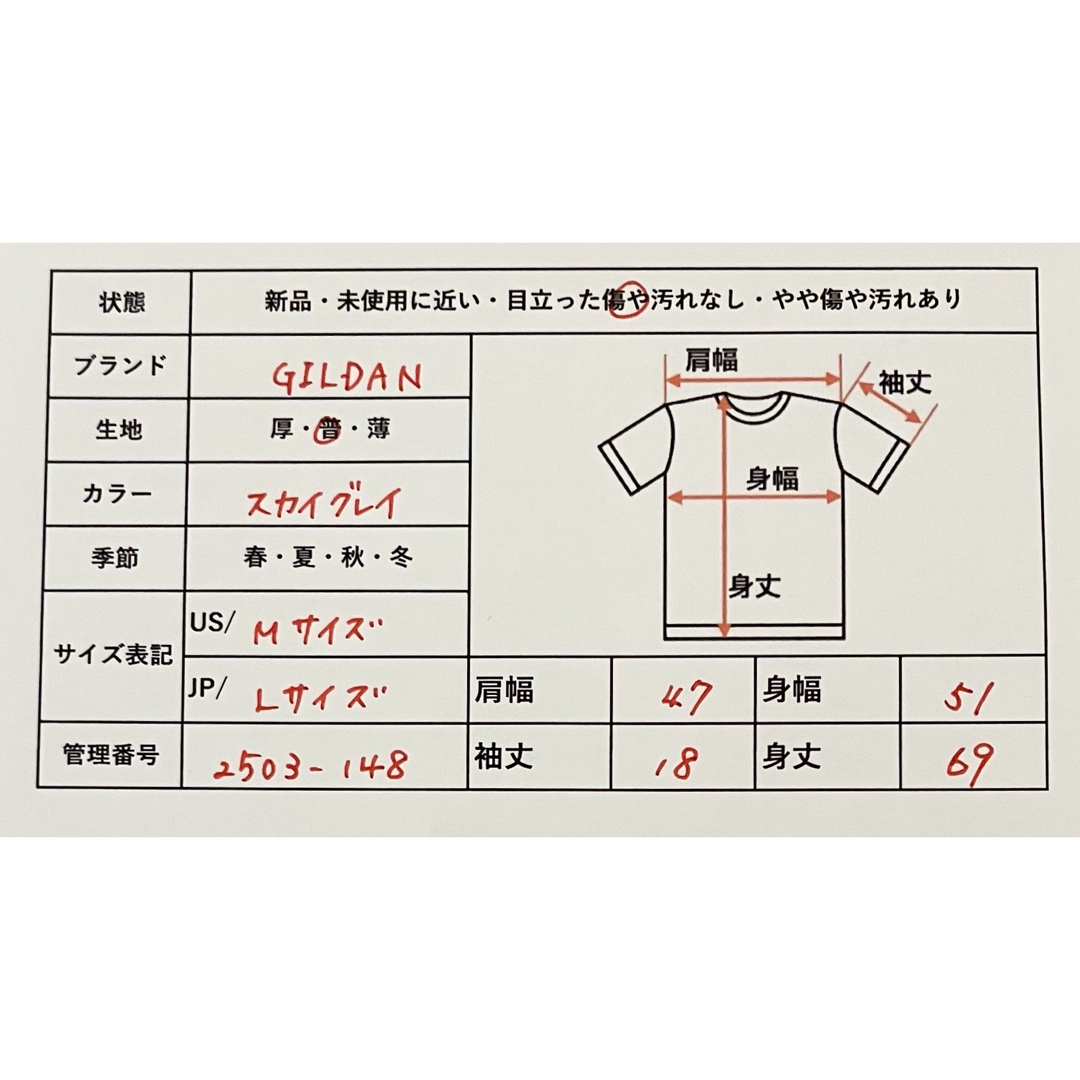 状態 新品・未使用に近い・目立った傷や汚れなし・やや傷や汚れあり
ブランド GILDAN
生地 厚・普・薄
カラー スカイグレイ
季節 春・夏・秋・冬
肩幅
袖丈
身幅
身丈
サイズ表記
US/ Mサイズ
JP/ Lサイズ 肩幅 47 身幅 51
管理番号 2503-148 袖丈 18 身丈 69